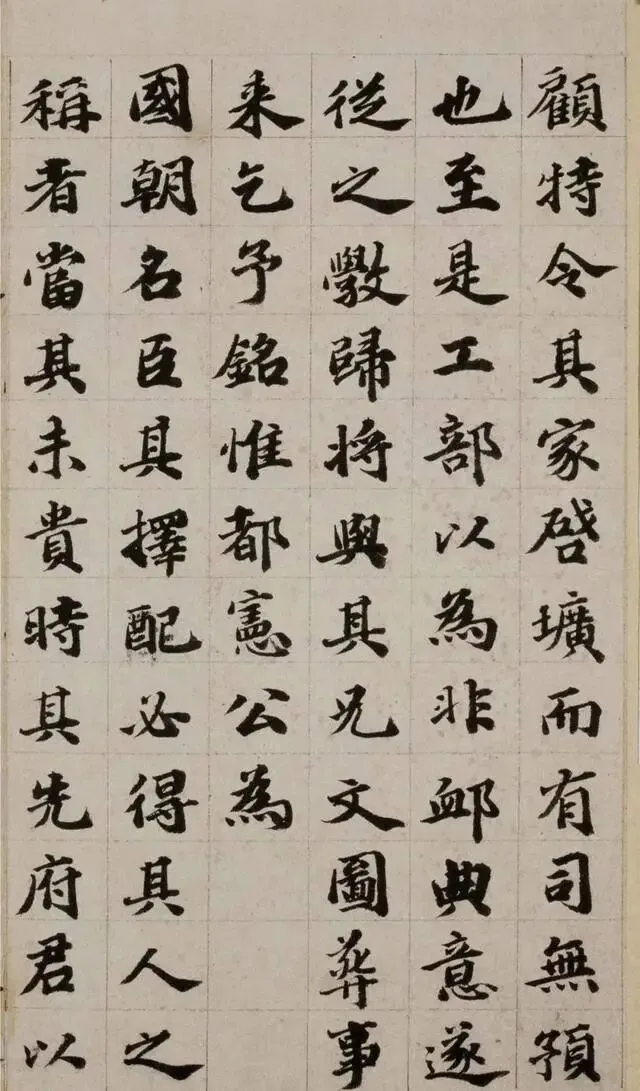 顧特令其家啓壙而有司無預
也至是工部以為非䘏典意遂
從之斅歸将與其兄文圖葬事
来乞予銘惟都憲公為
國朝名臣其擇配必得其人之
稱者當其未貴時其先府君以